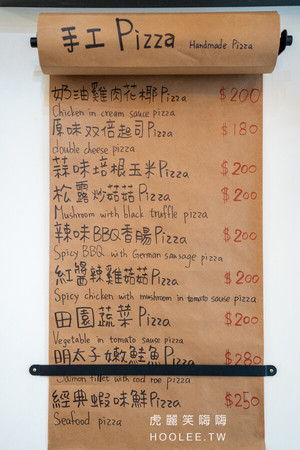 手工 Pizza Handmade Pizza
奶油雞肉花椰Pizza $200
Chicken in cream sauce pizza
原味双倍起司Pizza $180
double cheese Pizza
蒜味培根玉米Pizza $200
松露炒菇菇Pizza $200
Mushroom with black truffle pizza
辣味BBQ香腸Pizza $200
Spicy BBQ with German sausage pizza
紅醬辣雞菇菇Pizza $200
Spicy chicken with mushroom in tomato sauce pizza
田園蔬菜Pizza $200
Vegetable in tomato sauce pizza
明太子嫩鮭魚Pizza $280
Salmon fillet with cod roe pizza
經典蝦味鮮Pizza $250
Seafood pizza
虎麗笑嗨嗨
HOOLEE.TW